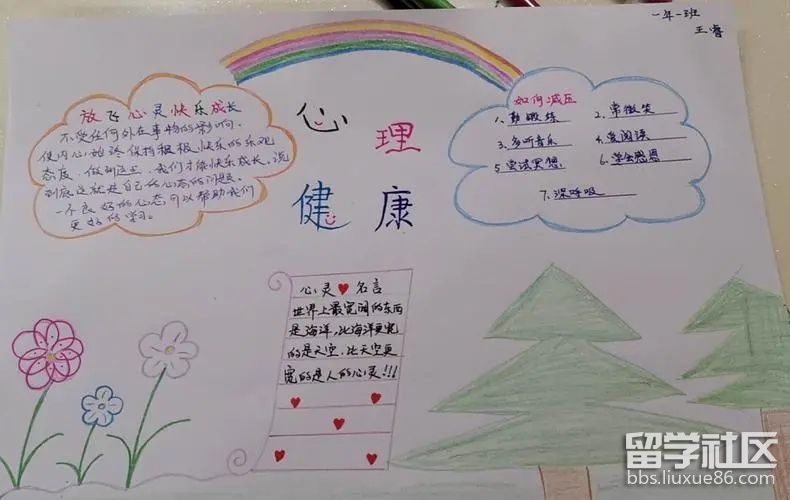 一年一班
王睿
放飞心灵快乐成长
不受任何外在事物的影响.
使内心始终保持积极、快乐的乐观
态度，做到这些，我们才能快乐成长。说
到底这就是自己的心态的问题。
一个良好的心态可以帮助我们
更好的学习。
心理
健康
如何减压
1、勤锻炼
2、常微笑
3、多听音乐
4、爱阅读
5、尝试冥想
6、学会感恩
7、深呼吸
心灵 名言
世界上最宽阔的东西
是海洋，比海洋更宽
的是天空，比天空更
宽的是人的心灵!!!
留学社区
bbs.liuxue86.com